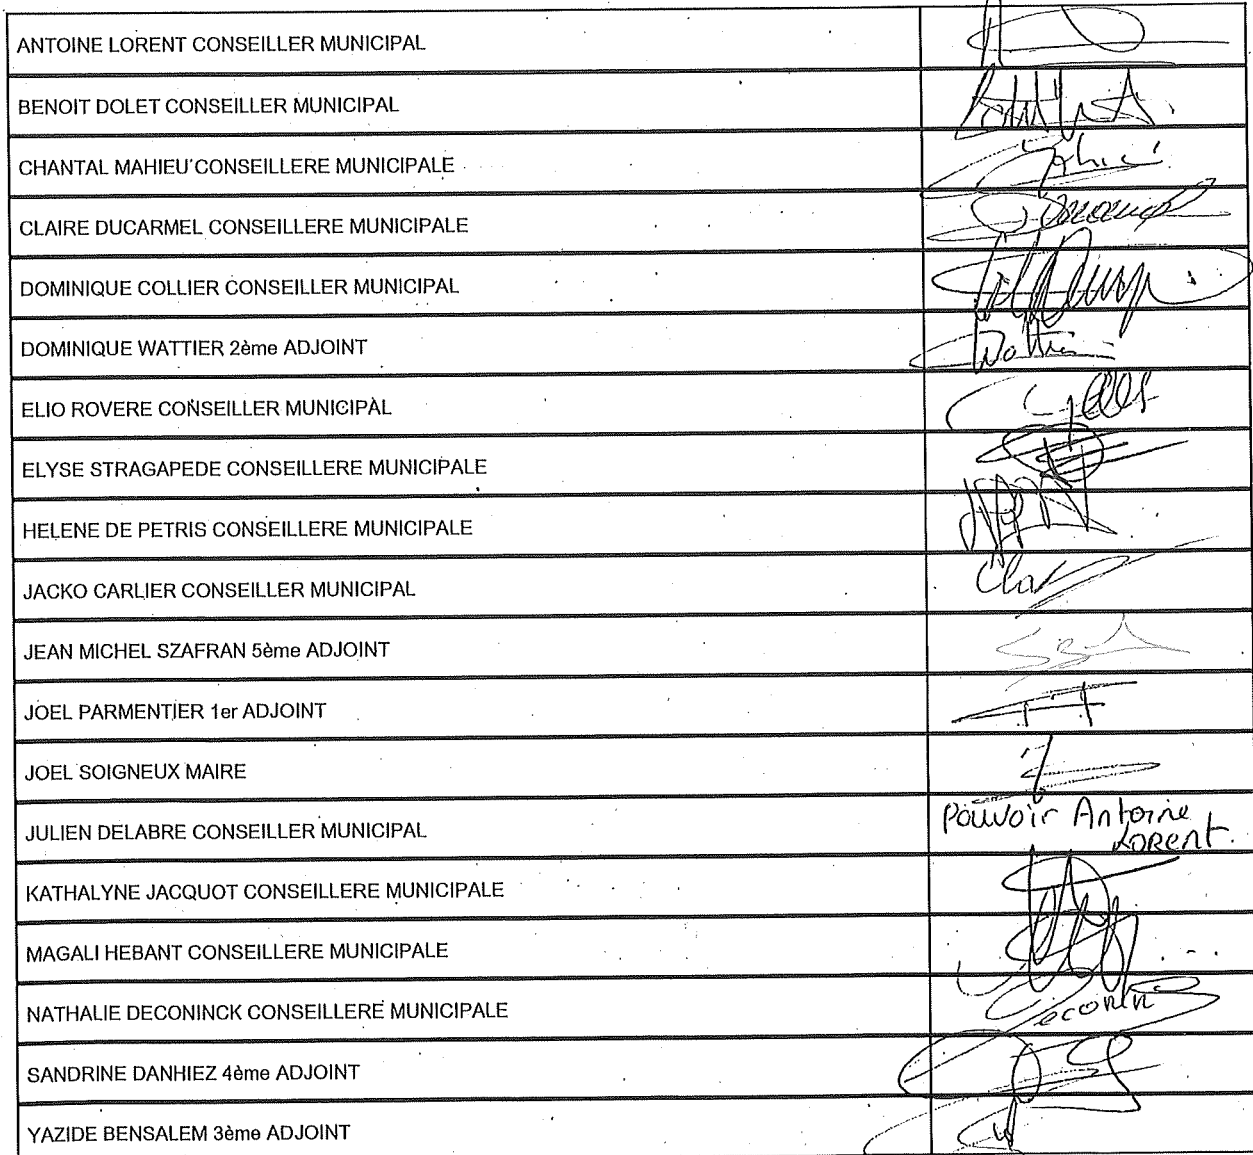 ANTOINE LORENT CONSEILLER MUNICIPAL
BENOIT DOLET CONSEILLER MUNICIPAL
CHANTAL MAHIEU CONSEILLERE MUNICIPALE
CLAIRE DUCARMEL CONSEILLERE MUNICIPALE
DOMINIQUE COLLIER CONSEILLER MUNICIPAL
DOMINIQUE WATTIER 2ème ADJOINT
ELIO ROVERE CONSEILLER MUNICIPAL
ELYSE STRAGAPEDE CONSEILLERE MUNICIPALE
HELENE DE PETRIS CONSEILLERE MUNICIPALE
JACKO CARLIER CONSEILLER MUNICIPAL
JEAN MICHEL SZAFRAN 5ème ADJOINT
JOEL PARMENTIER 1er ADJOINT
JOEL SOIGNEUX MAIRE
JULIEN DELABRE CONSEILLER MUNICIPAL
Pouvoir Antoine
Lorent.
KATHALYNE JACQUOT CONSEILLERE MUNICIPALE
MAGALI HEBANT CONSEILLERE MUNICIPALE
NATHALIE DECONINCK CONSEILLERE MUNICIPALE
SANDRINE DANHIEZ 4ème ADJOINT
YAZIDE BENSALEM 3ème ADJOINT